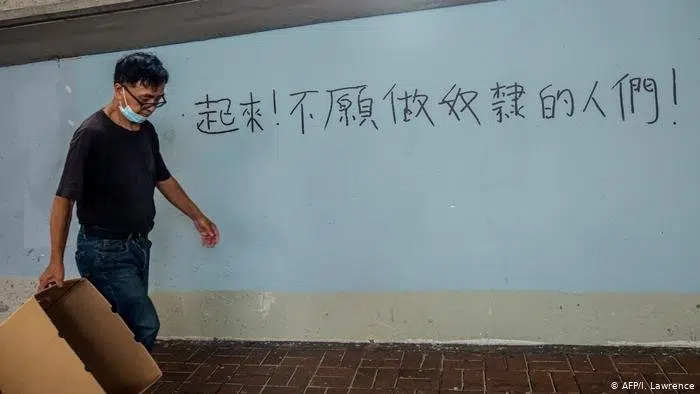 起來！不願做奴隸的人們！
© AFP/I. Lawrence